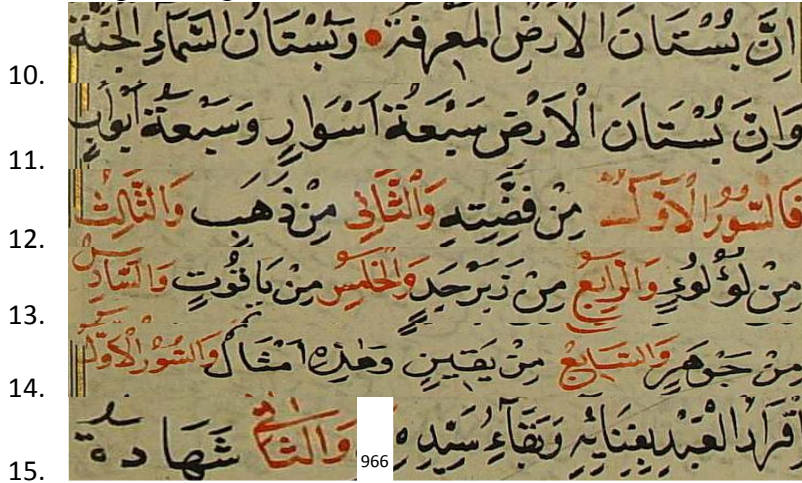 10. اِنَّ بُسْتَانَ الْاَرْضِ الْمَعْرِفَةُ • وَبُسْتَانُ السَّمَاءِ الْجَنَّةُ
11. وَاِنَّ بُسْتَانَ الْاَرْضِ سَبْعَةُ اَسْوَارٍ وَسَبْعَةُ اَبْوَابٍ
12. فَالسُّورُ الْاَوَّلُ مِنْ فِضَّةٍ وَالثَّانِي مِنْ ذَهَبٍ وَالثَّالِثُ
13. مِنْ لُؤْلُوءٍ وَالرَّابِعُ مِنْ زَبَرْجَدٍ وَالْخَامِسُ مِنْ يَاقُوتٍ وَالسَّادِسُ
14. مِنْ جَوْهَرٍ وَالسَّابِعُ مِنْ يَقِينٍ وَهٰذِهِ اَمْثَالٌ وَالسُّورُ الْاَوَّلُ
15. اِقْرَارُ الْعَبْدِ بِفَنَائِهِ وَبَقَاءِ سَيِّدِهِ 966 وَالثَّانِي شَهَادَةُ